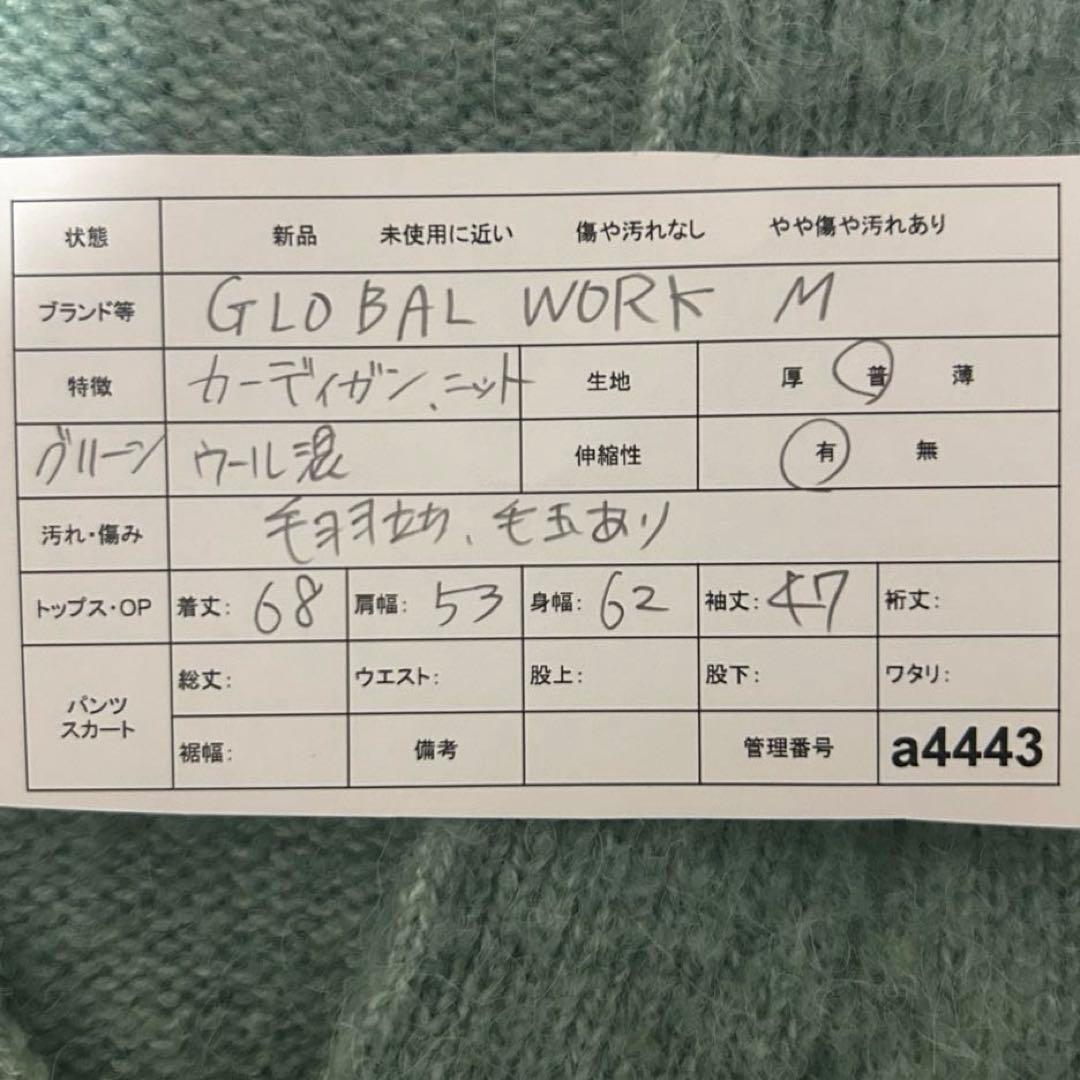 状態 新品 未使用に近い 傷や汚れなし やや傷や汚れあり
ブランド等 GLOBAL WORK M
特徴 カーディガン、ニット 生地 厚 普 薄
グリーン ウール混 伸縮性 有 無
汚れ・傷み 毛羽立ち、毛玉あり
トップス・OP 着丈: 68 肩幅: 53 身幅: 62 袖丈: 47 裄丈:
パンツ スカート 総丈: ウエスト: 股上: 股下: ワタリ:
裾幅: 備考 管理番号 a4443